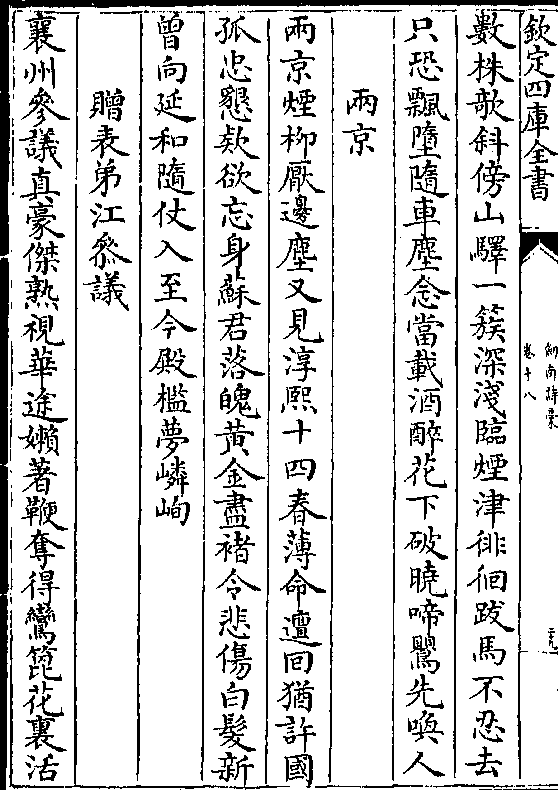 欽定四庫全書
劍南詩稾
卷十八
數株欹斜傍山驛一簇深淺臨煙津徘徊跋馬不忍去
只恐飄墮隨車塵念當載酒醉花下破曉啼鸎先喚人
兩京
兩京煙柳厭邊塵又見淳熙十四春薄命邅回猶許國
孤忠懇欵欲忘身蘇君落魄黃金盡褚令悲傷白髮新
曾向延和隨仗入至今殿檻夢嶙峋
贈表弟江叅議
襄州參議真豪傑熟視華途嬾著鞭奪得鸞箆花裏活